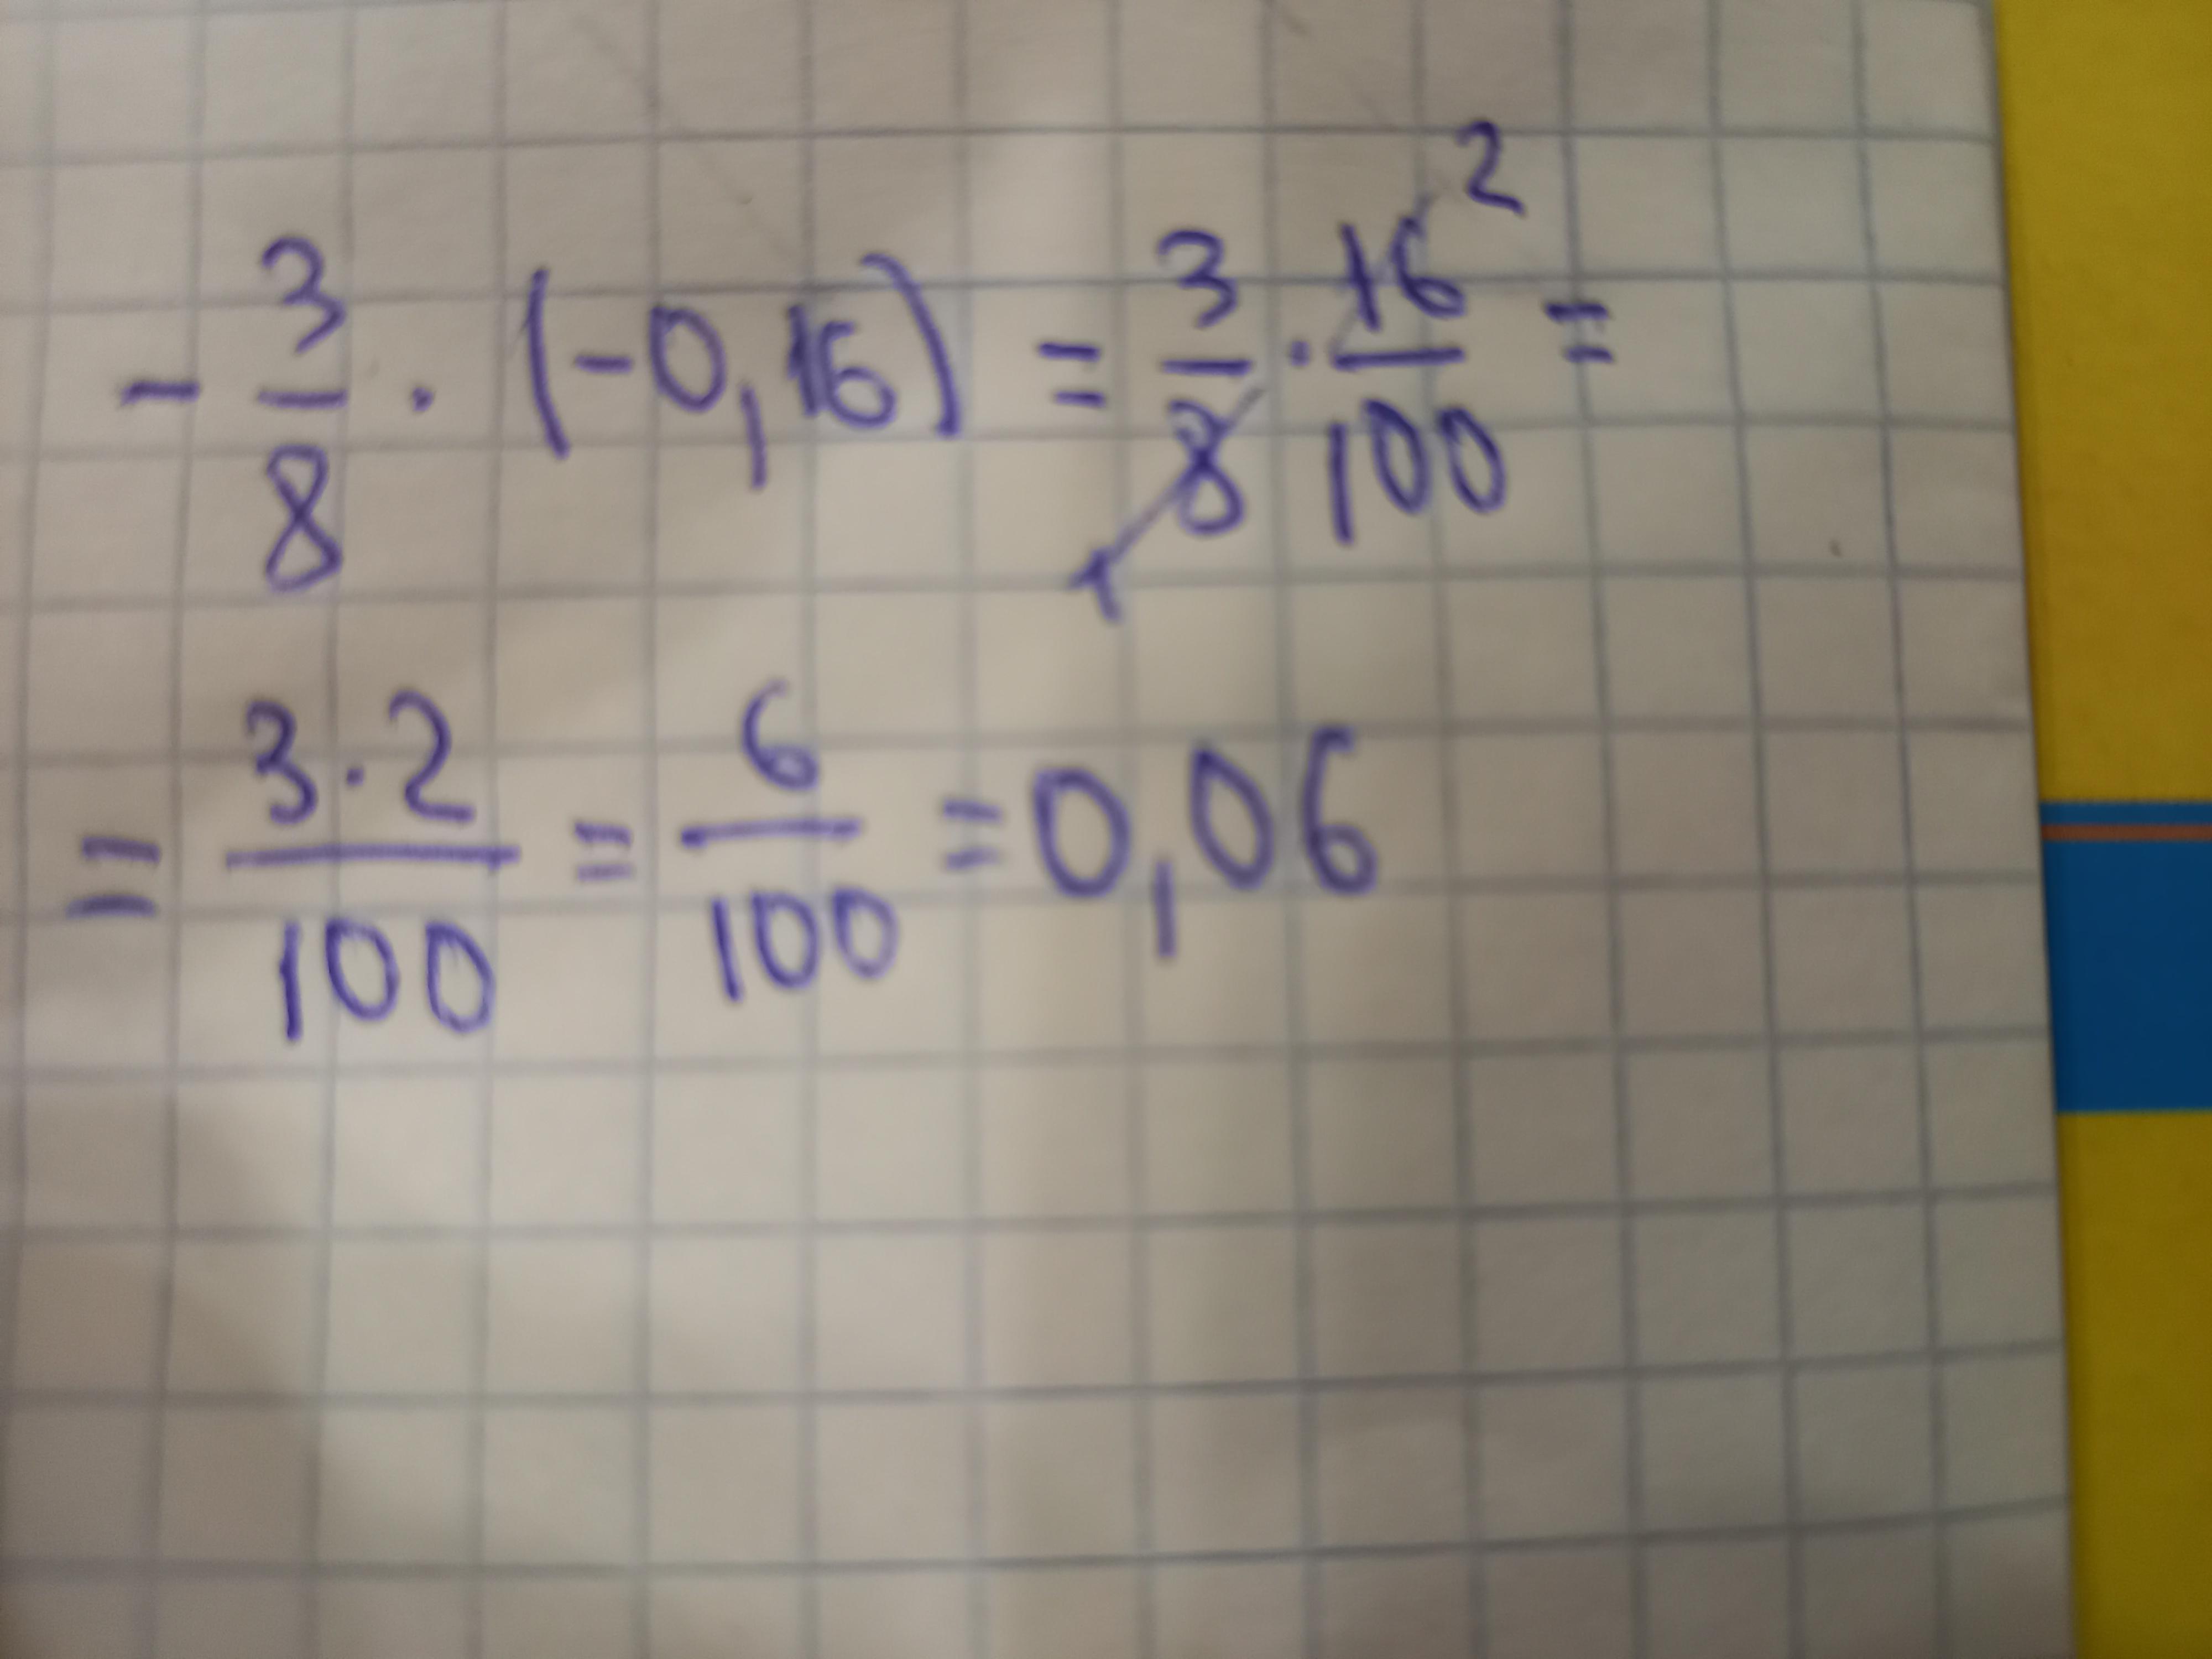 - 3/8 · (-0,16) = 3/8 1 · 16/100 2 =
= 3·2/100 = 6/100 = 0,06